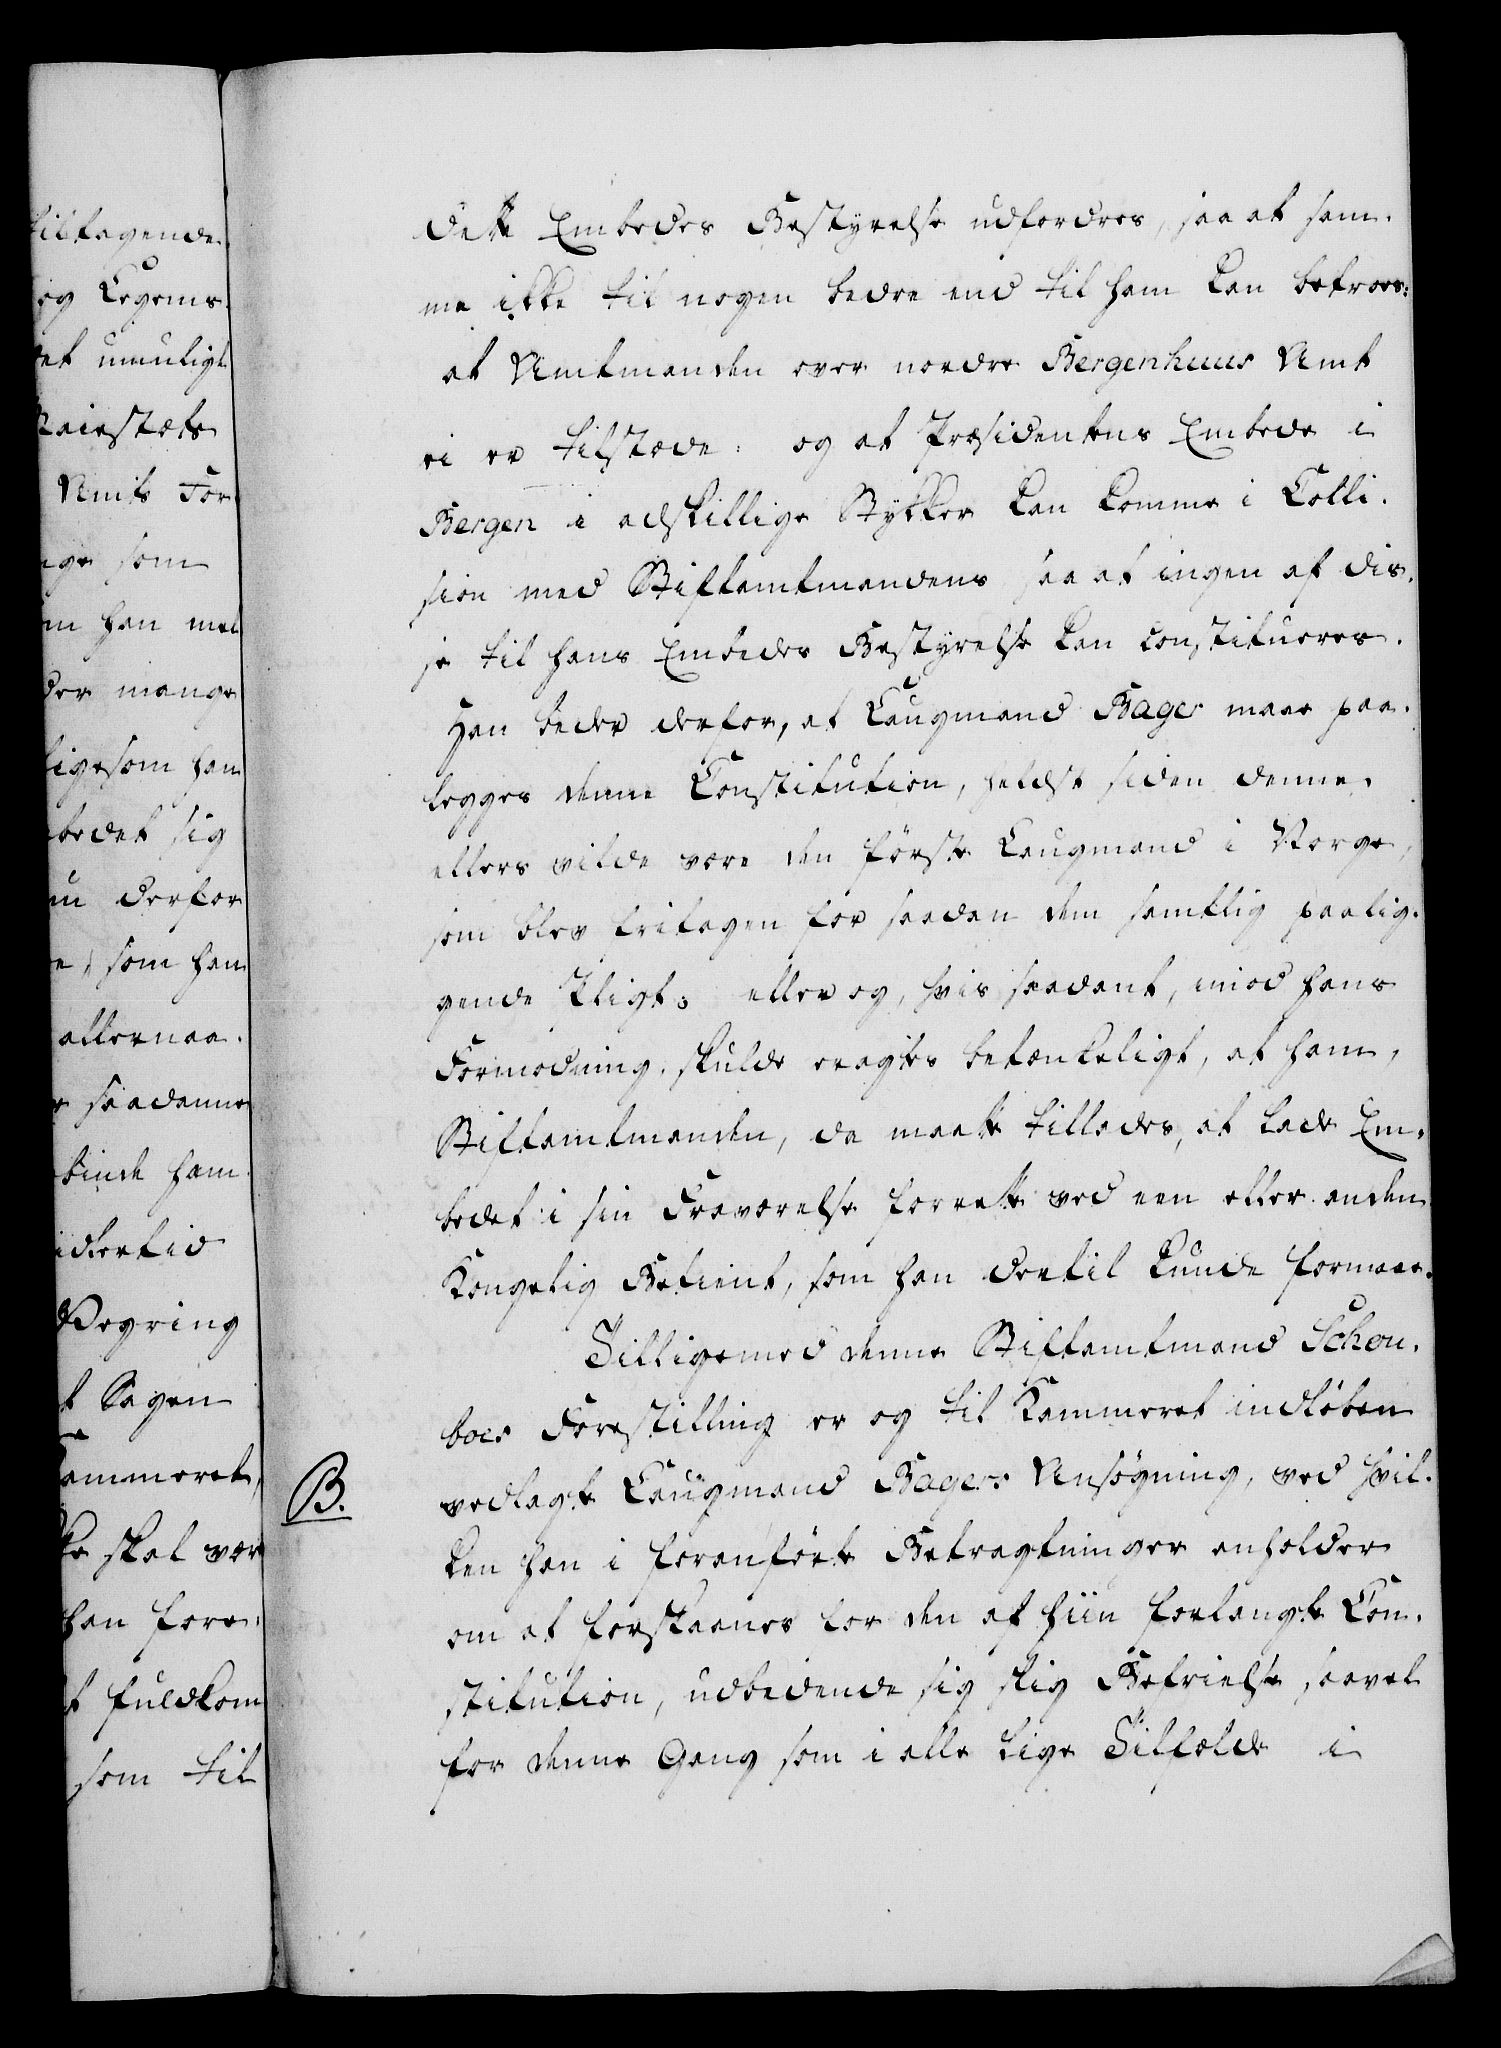 tiltagende
og Legems
et umuligt
Maiestæts
Amts For
nge som
m han med
der mange
ligesom han
bedet sig
derfor
e, som han
allernaa-
saadanne
binde ham
idlertid
Vegring
t Sagen
Kammeret,
ke skal vær
han fore-
t fuldkom
som til
dette Embedes Bestyrelse udfordres, saa at sam-
me ikke til nogen bedre end til ham kan betroes:
at Amtmanden over nordre Bergenhuus Amt
ei er tilstæde: og at Præsidentens Embede i
Bergen i adskillige Stykker kan komme i Colli-
sion med Stiftamtmandens saa at ingen af dis-
se til hans Embedes Bestyrelse kan constitueres.
Han beder derfor, at Laugmand Bager maae paa-
legges denne Constitution, heldst siden denne
ellers vilde være den første Laugmand i Norge,
som blev fritagen for saadan dem samtlig paalig-
gende Pligt; eller og, hvis saadant, imod hans
Formodning, skulde eragtes betænkeligt, at ham,
Stiftamtmanden, da maatte tillades, at lade Em-
bedet i sin Fraværelse forrette ved een eller anden
Kongelig Betient, som han dertil kunde formaae.
Tilligemed denne Stiftamtmand Schou-
boes Forestilling er og til Kammeret indløben
B.
vedlagte Laugmand Bagers Ansøgning, ved hvil-
ken han i foranførte Betragtninger anholder
om at forskaanes for den af hiin forlangte Con-
stitution, udbedende sig slig Befrielse saavel
for denne Gang som i alle lige Tilfælde i